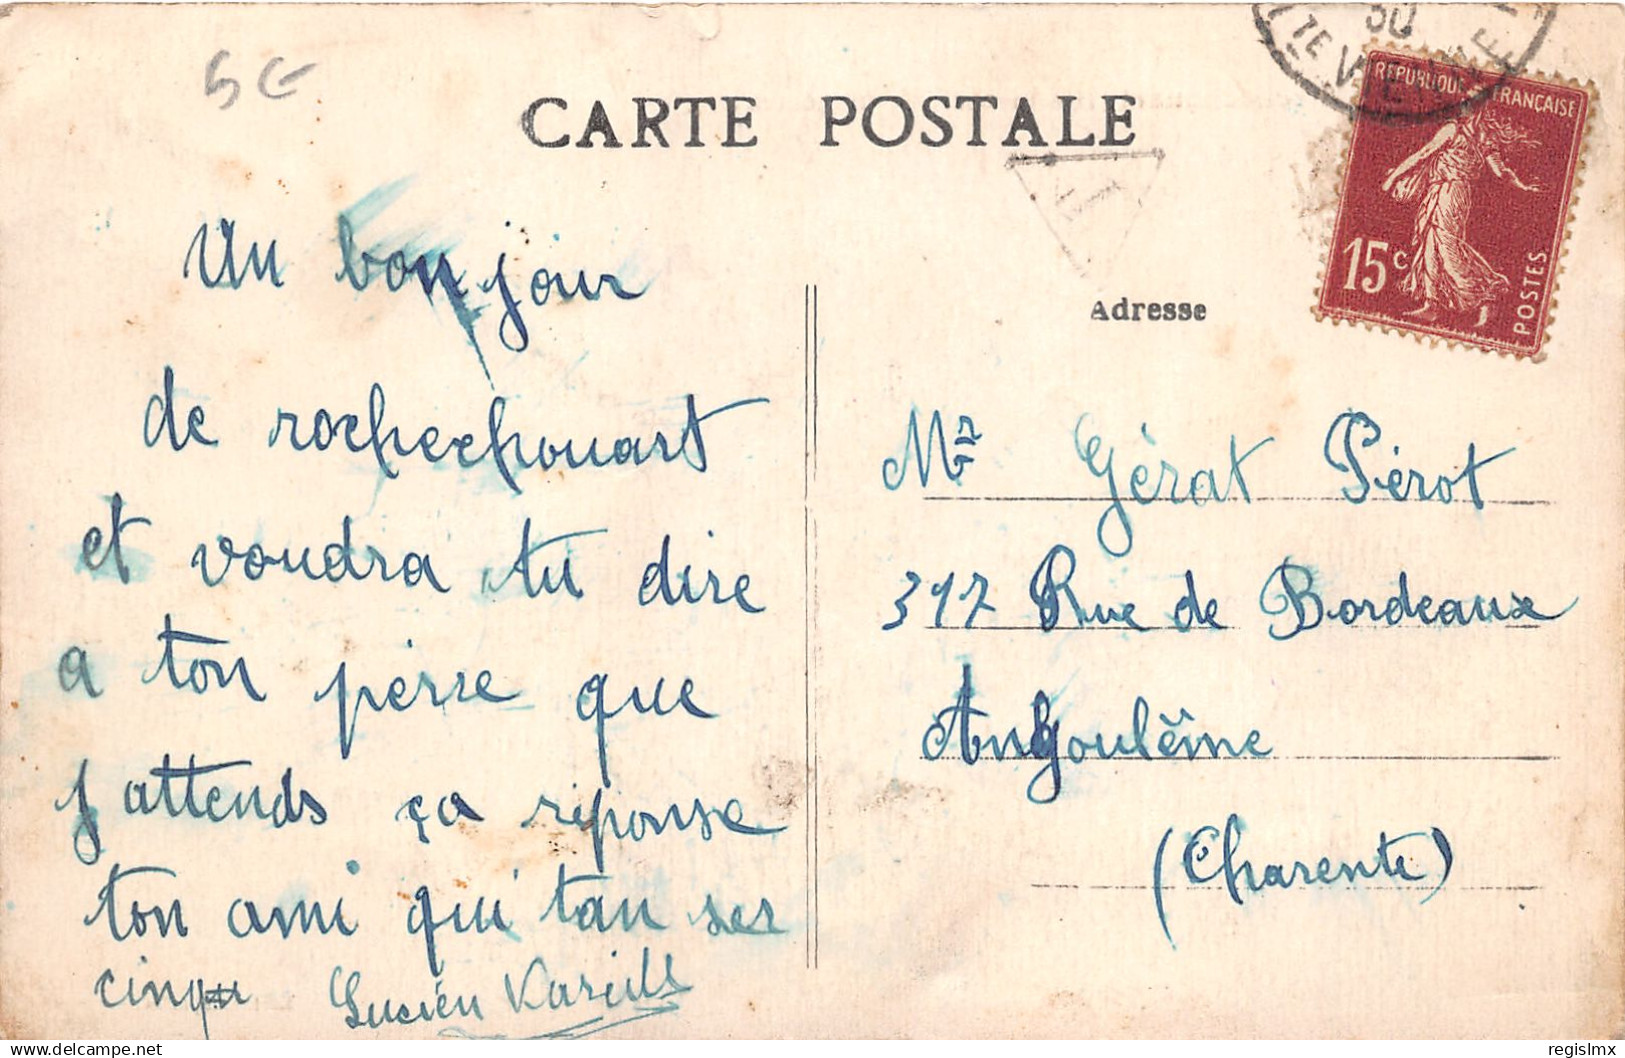 5€
CARTE POSTALE
30
REPUBLIQUE FRANÇAISE
15c
POSTES
T
Adresse
Un bonjour
de rochechouart
et voudra tu dire
a ton perre que
j attends ça réponse
ton ami qui tan ser
cinque Lucien
Mr Gérat Pérot
317 Rue de Bordeaux
Angoulême
(Charente)
delcampe.net
regislmx